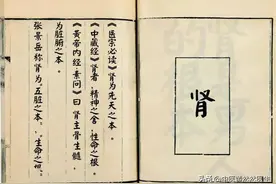 肾
《医宗必读》肾为先天之本。
《中藏经》肾者，精神之舍，性命之根。
《黄帝内经·素问》曰肾主骨生髓，
为脏腑之本。
张景岳称肾为“五脏之本。”“生命之